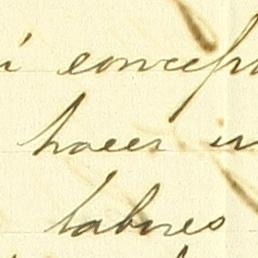 i concep
hacer u
labores